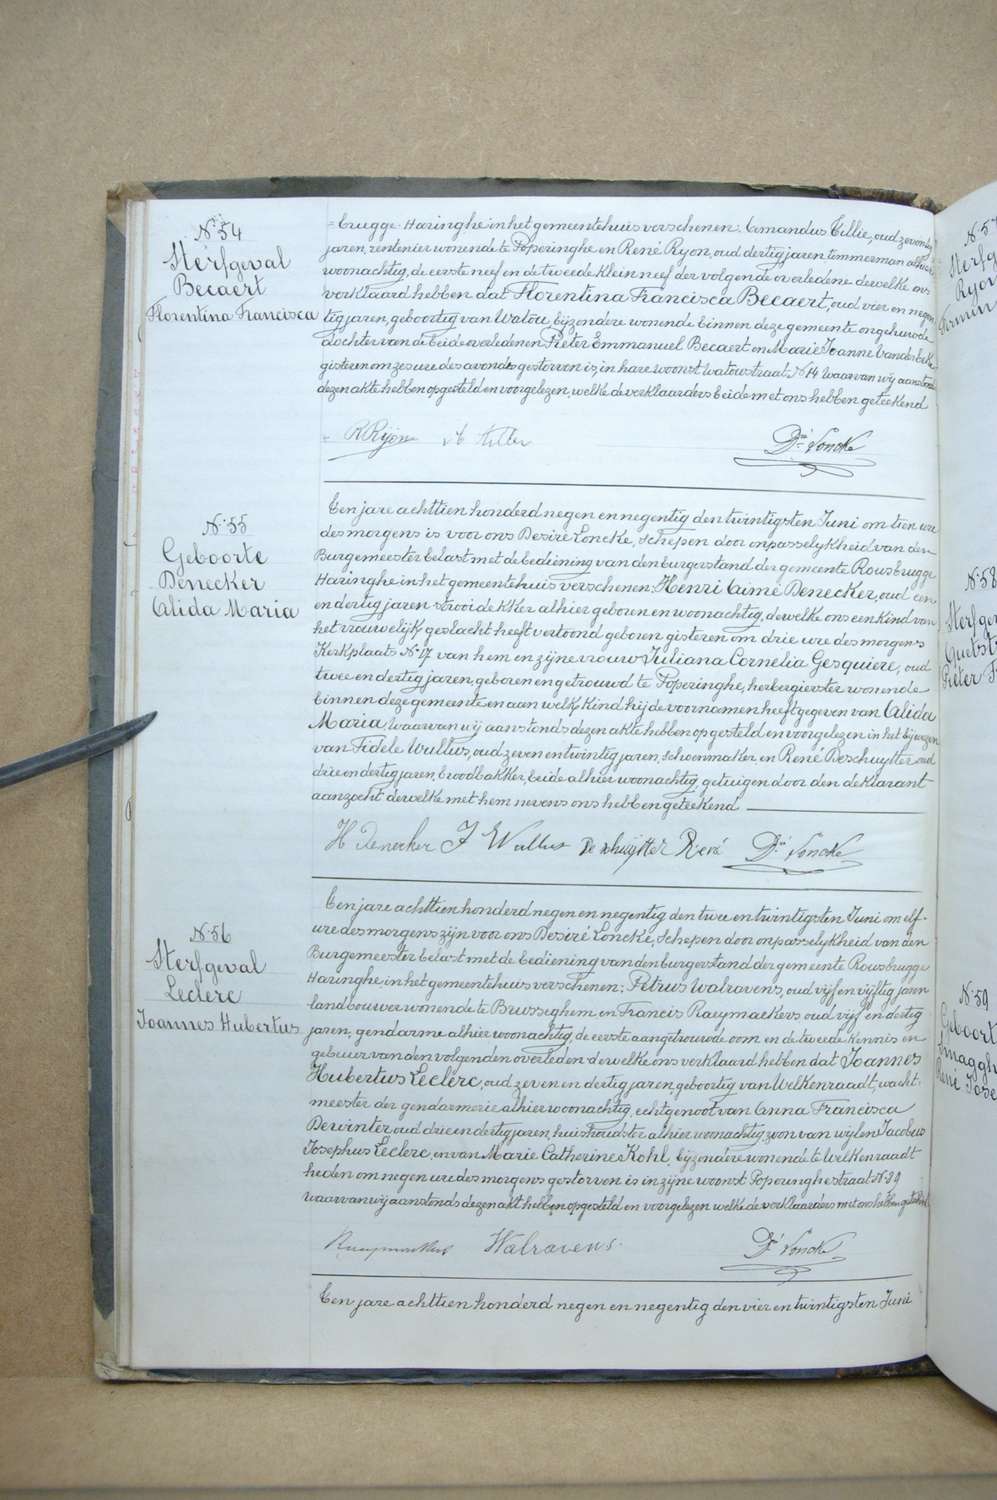 N° 54
Sterfgeval
Becaert
Florentina Francisca
=brugge-Haringhe in het gemeentehuis verschenen: Amandus Tillie, oud zeventig
jaren, rentenier wonende te Poperinghe en René Ryon, oud dertig jaren timmerman alhier
woonachtig, de eerste neef en de tweede klein neef der volgende overledene dewelke ons
verklaard hebben dat Florentina Francisca Becaert, oud vier en negen
tig jaren, geboortig van Watou, bijzondere wonende binnen deze gemeente ongehuwde
dochter van de beide overledenen Pieter Emmanuel Becaert en Marie Joanne
gisteren om zes ure des avonds gestorven is, in hare woonst Watoustraat N° 14 Waarvan wij aanstonds
dezen akte hebben opgesteld en voorgelezen, welke de verklaarders beide met ons hebben geteekend
R Rijon Tillie Dré Loncke
N° 55
Geboorte
Denecker
Alida Maria
Een jare achttien honderd negen en negentig den twintigsten Juni om tien ure
des morgens is voor ons Desiré Loncke, Schepen door onpasselykheid van den
Burgemeester belast met de bediening van den burgerstand der gemeente Rousbrugge
Haringhe in het gemeentehuis verschenen: Henri Aimé Denecker, oud een
en dertig jaren strooidekker alhier geboren en woonachtig, dewelke ons een kind van
het vrouwelijk geslacht heeft vertoond geboren gisteren om drie ure des morgens
Kerkplaats N° 17 van hem en zijne vrouw Juliana Cornelia Gesquiere, oud
twee en dertig jaren, geboren en getrouwd te Poperinghe, herbergierster wonende
binnen deze gemeente en aan welk kind hij de voornamen heeft gegeven van Alida
Maria, Waarvan wij aanstonds dezen akte hebben opgesteld en voorgelezen in het bijwezen
van Fidele Wullus, oud zeven en twintig jaren, schoenmaker en René Deschuytter oud
drie en dertig jaren, broodbakker, beide alhier woonachtig, getuigen door den deklarant
aanzocht dewelke met hem nevens ons hebben geteekend
H Denecker F Wullus Deschuytter René Dré Loncke
N° 56
Sterfgeval
Leclerc
Joannes Hubertus
Een jare achttien honderd negen en negentig den twee en twintigsten Juni om elf
ure des morgens zijn voor ons Desiré Loncke, Schepen door onpasselykheid van den
Burgemeester belast met de bediening van den burgerstand der gemeente Rousbrugge
Haringhe in het gemeentehuis verschenen: Petrus Walravens, oud vijf en vijftig jaren
landbouwer wonende te Brusseghem en Francis Raeymaekers oud vijf en dertig
jaren, gendarme alhier woonachtig, de eerste aangetrouwde oom en de tweede kennis en
gebuur van den volgenden overleden dewelke ons verklaard hebben dat Joannes
Hubertus Leclerc, oud zeven en dertig jaren, geboortig van Welkenraadt, wacht-
meester der gendarmerie alhier woonachtig, echtgenoot van Anna Francisca
Dewinter oud drie en dertig jaren, huishoudster alhier woonachtig, zoon van wijlen Jacobus
Josephus Leclerc, en van Marie Catherine Kohl, bijzondere wonende te Welkenraadt
heden om negen ure des morgens gestorven is in zijne woonst Poperinghestraat N° 39
waarvan wij aanstonds dezen akt hebben opgesteld en voorgelezen welke de verklaarders met ons hebben geteekend
Raeymaekers Walravens Dré Loncke
Een jare achttien honderd negen en negentig den vier en twintigsten Juni
N° 58
N° 59